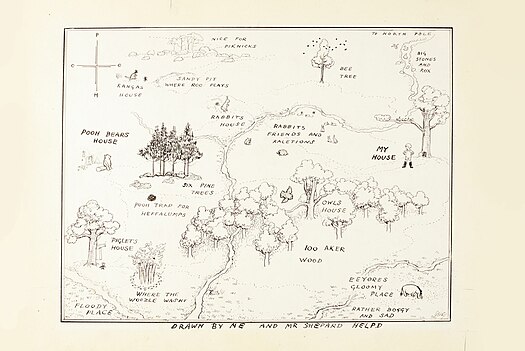 P
O
O
H
NICE FOR
PIKNICKS
BEE
TREE
TO NORTH POLE
BIG
STONES
AND
ROX
KANGAS
HOUSE
SANDY PIT
WHERE ROO PLAYS
RABBITS
HOUSE
RABBITS
FRIENDS AND
RALETIONS
MY
HOUSE
POOH BEARS
HOUSE
SIX PINE
TREES
POOH TRAP FOR
HEFFALUMPS
OWLS
HOUSE
PIGLETS
HOUSE
100 AKER
WOOD
WHERE THE
WOOZLE WASNT
FLOODY
PLACE
EEYORES
GLOOMY
PLACE
RATHER BOGGY
AND SAD
DRAWN BY ME AND MR SHEPARD HELPD